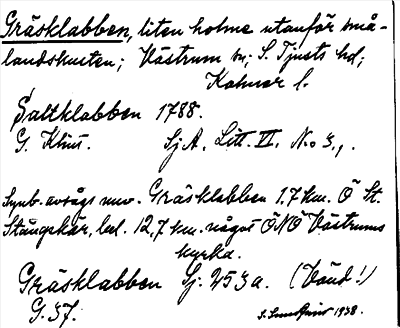 Gräsklabben, liten holme utanför små-
landskusten; Västrum sn; S. Tjusts hd;
Kalmar l.
Saltklabben 1788.
G. Klint. Sj.A. Litt. VI. No 3.,
Synb. avsågs nuv. Gräsklabben 1,7 km. Ö St.
Stångskär, bel. 12,7 km. något ÖNÖ Västrums
kyrka.
Gräsklabben Sj. 253a. (Vänd!)
G. 37. 1938.